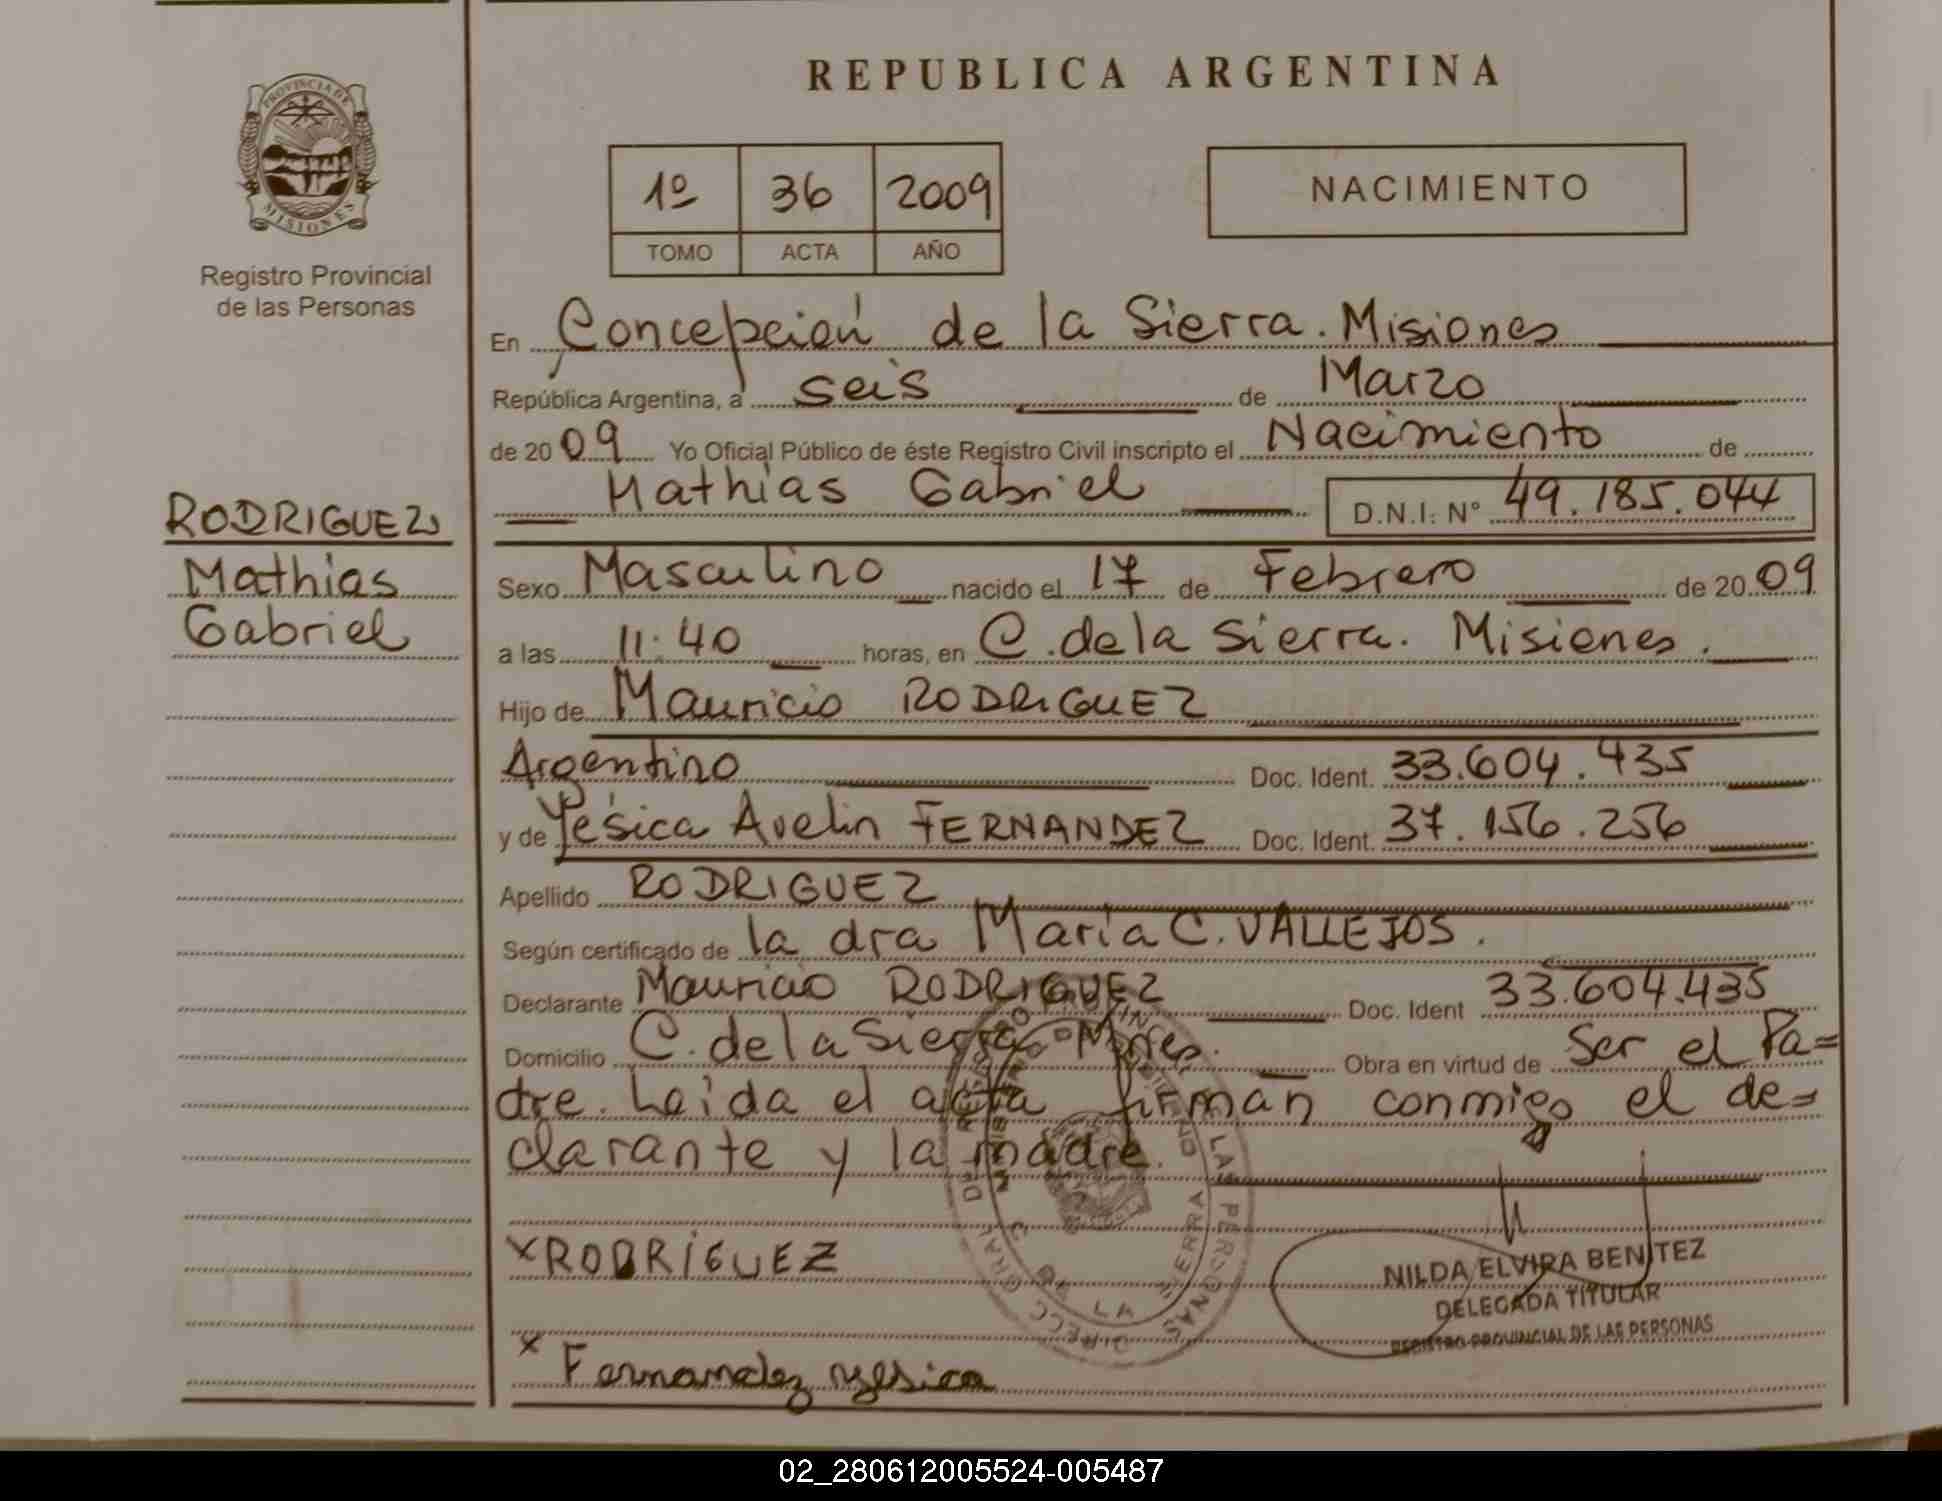 REPUBLICA ARGENTINA
PROVINCIA DE
MISIONES
Registro Provincial
de las Personas
1º 36 2009
TOMO ACTA AÑO
NACIMIENTO
En Concepción de la Sierra. Misiones
República Argentina, a seis de Marzo
de 2009 Yo Oficial Público de éste Registro Civil inscripto el Nacimiento de
Mathias Gabriel D.N.I. N° 49.185.044
RODRIGUEZ
Mathias
Gabriel
Sexo Masculino nacido el 17 de Febrero de 2009
a las 11:40 horas, en C. de la Sierra. Misiones.
Hijo de Mauricio RODRIGUEZ
Argentino Doc. Ident. 33.604.435
y de Yésica Avelin FERNANDEZ Doc. Ident. 37.156.256
Apellido RODRIGUEZ
Según certificado de la dra María C. VALLEJOS.
Declarante Mauricio RODRIGUEZ Doc. Ident 33.604.435
Domicilio C. de la Sierra Mnes. Obra en virtud de Ser el Pa=
dre. Leída el acta firman conmigo el de=
clarante y la madre.
x RODRIGUEZ
NILDA ELVIRA BENITEZ
DELEGADA TITULAR
REGISTRO PROVINCIAL DE LAS PERSONAS
x Fernandez yesica
02_280612005524-005487